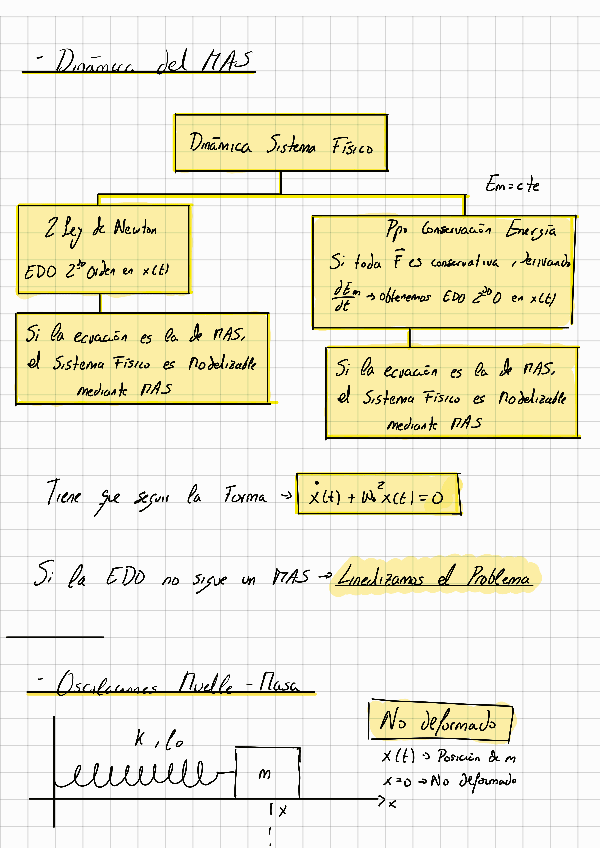 - Dinámica del MAS
Dinámica Sistema Físico
Em = cte
2 Ley de Newton
EDO 2do Orden en x(t)
Si la ecuación es la de MAS,
el Sistema Físico es Modelizable
mediante MAS
Ppo Conservación Energía
Si toda F⃗ es conservativa, derivando
dEm/dt → obtenemos EDO 2do O en x(t)
Si la ecuación es la de MAS,
el Sistema Físico es Modelizable
mediante MAS
Tiene que seguir la Forma → ẋ(t) + ω₀² x(t) = 0
Si la EDO no sigue un MAS → Linealizamos el Problema
- Oscilaciones Muelle - Masa
No deformado
K, l₀
x(t) → Posición de m
m
x=0 → No deformado
x
x